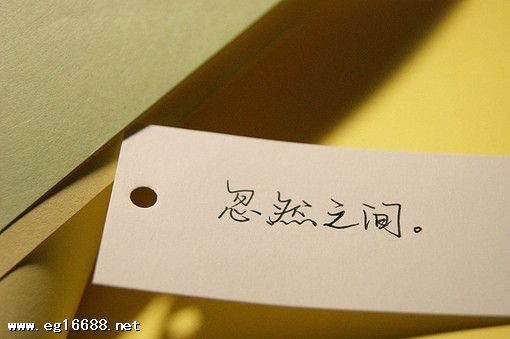 忽然之间。
www.eg16688.net